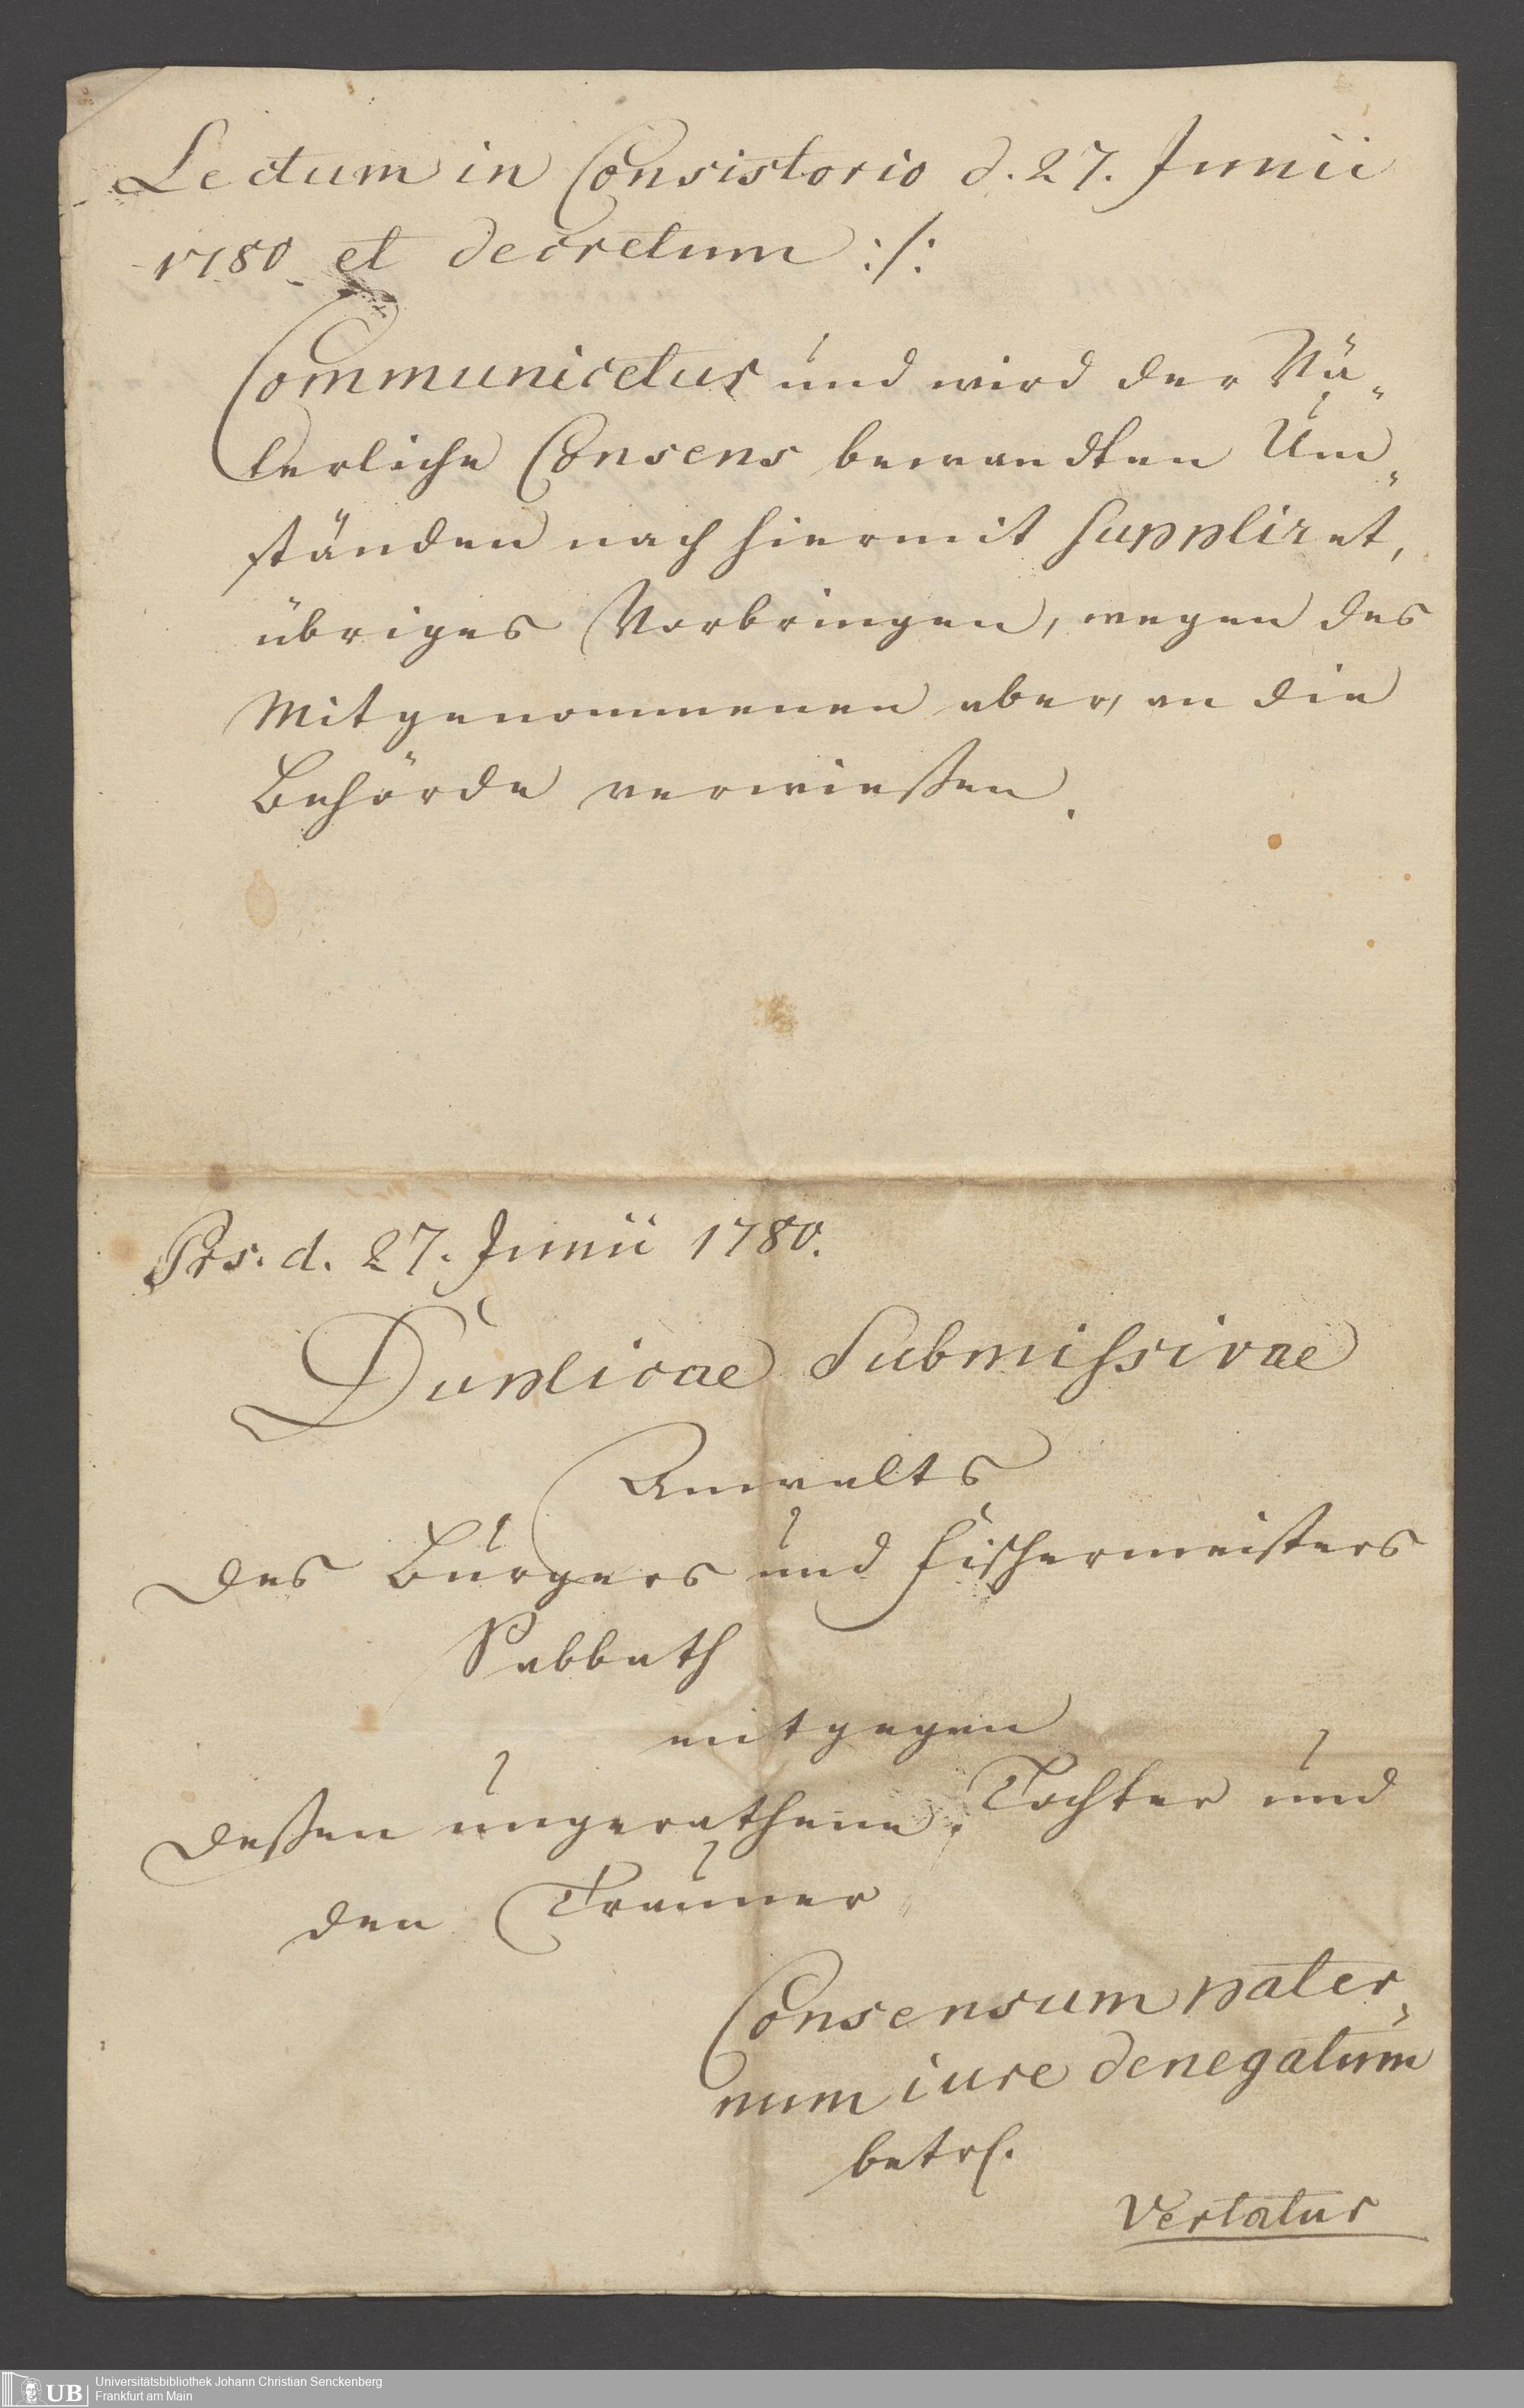 Lectum in Consistorio d. 27. Junii
1780 et decretum :/:
Communicetur und wird der Vä-
terliche Consens bewandten Um-
ständen nach hiermit suppliret,
übriges Vorbringen, wegen des
Mitgenommenen aber, an die
Behörde verwießen.
Prs. d. 27. Junii 1780.
Duplicae Submissivae
Anwalts
des Burgers und Fischermeisters
Sabbath
entgegen
deßen ungerathene Tochter und
den Trauner
Consensum pater-
num iure denegatum
betrf.
Vertatur
UB
Universitätsbibliothek Johann Christian Senckenberg
Frankfurt am Main